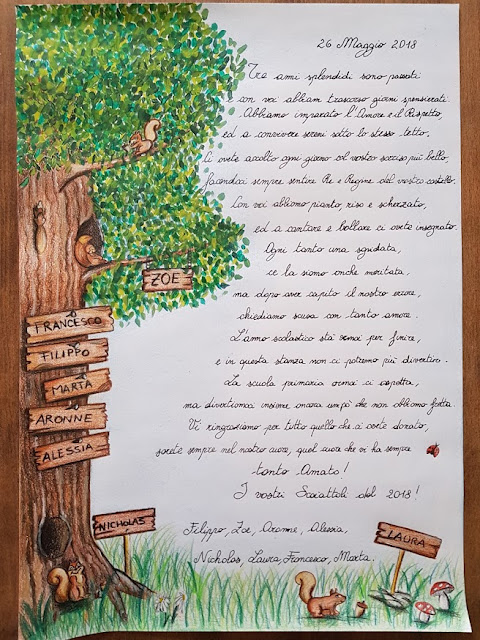 26 Maggio 2018
Tre anni splendidi sono passati
e con voi abbiam trascorso giorni spensierati.
Abbiamo imparato l'Amore e il Rispetto,
ed a convivere sereni sotto lo stesso tetto,
Ci avete accolto ogni giorno col vostro sorriso più bello,
facendoci sempre sentire Re e Regine del vostro castello.
Con voi abbiamo pianto, riso e scherzato,
ed a cantare e ballare ci avete insegnato.
Ogni tanto una sgridata,
ce la siamo anche meritata,
ma dopo aver capito il nostro errore,
chiediamo scusa con tanto amore.
L'anno scolastico sta ormai per finire,
e in questa stanza non ci potremo più divertire.
La scuola primaria ormai ci aspetta,
ma divertiamoci insieme ancora un pò che non abbiamo fretta.
Vi ringraziamo per tutto quello che ci avete donato,
sarete sempre nel nostro cuore, quel cuore che vi ha sempre
tanto Amato!
I vostri Scoiattoli del 2018!
Filippo, Zoe, Aronne, Alessia,
Nicholas, Laura, Francesco, Marta.
ZOE
FRANCESCO
FILIPPO
MARTA
ARONNE
ALESSIA
NICHOLAS
LAURA